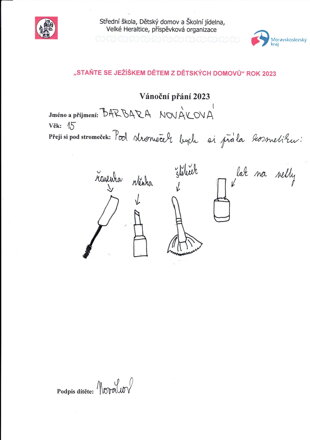 Střední škola, Dětský domov a Školní jídelna,
Velké Heraltice, příspěvková organizace
Moravskoslezský
kraj
„STAŇTE SE JEŽÍŠKEM DĚTEM Z DĚTSKÝCH DOMOVŮ" ROK 2023
Vánoční přání 2023
Jméno a příjmení: BARBARA NOVÁKOVÁ
Věk: 15
Přeji si pod stromeček: Pod stromeček bych si přála kosmetiku:
řasenka rtěnka štěteček lak na nehty
Podpis dítěte: